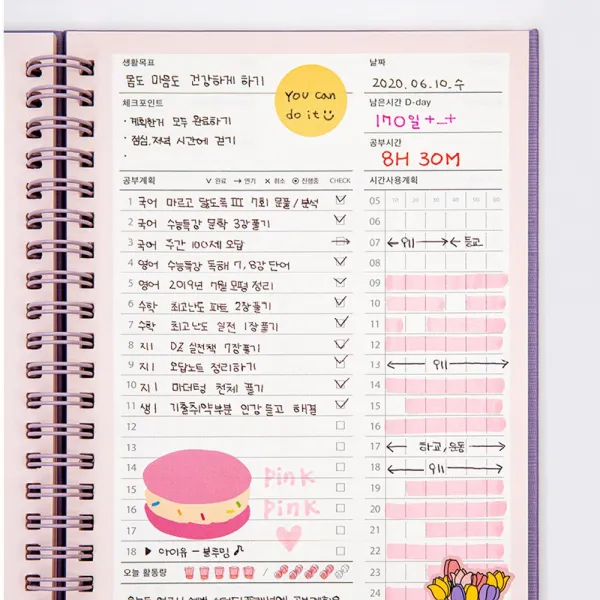 생활목표
몸도 마음도 건강하게 하기
You can
do it
체크포인트
· 계획한거 모두 완료하기
· 점심, 저녁 시간에 걷기
·
날짜
2020. 06. 10. 수
남은시간 D-day
170일 +_+
공부시간
8H 30M
공부계획 ∨ 완료 → 연기 × 취소 ⊙ 진행중 CHECK
1 국어 마르고 닳도록 III 7회 문풀 / 분석
2 국어 수능특강 문학 3강 풀기
3 국어 주간 100제 오답
4 영어 수능특강 독해 7, 8강 단어
5 영어 2019년 7월 모평 정리
6 수학 최고난도 파트 2장 풀기
7 수학 최고난도 실전 1장 풀기
8 지I 실전책 7장 풀기
9 지I 오답노트 정리하기
10 지I 마더텅 천체 풀기
11 생I 기출취약부분 인강 듣고 해결
12
13
14
15
16
17
18 ▶ 아이유 - 블루밍 ♪
pink
pink
오늘 활동량 /
시간사용계획
05 10 20 30 40 50 60
06
07 ← 위 → ← 등교
08
09
10
11
12
13 ← 위 →
14
15
16
17 ← 하교, 운동 →
18 ← 위 →
19
20
21
22
23
24